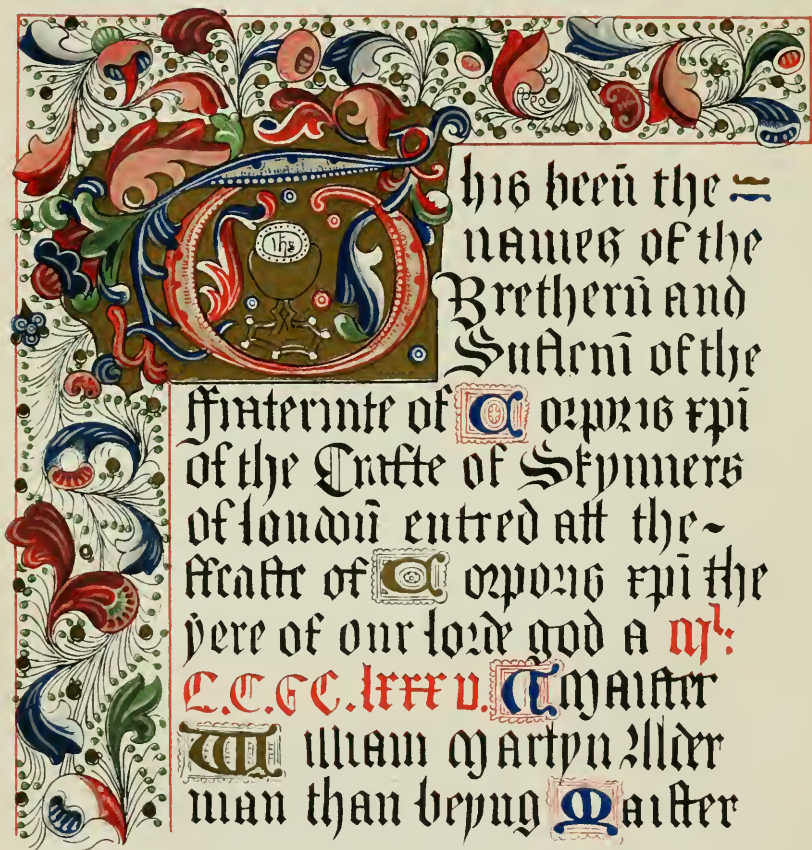 This beeñ the
names of the
Bretherñ and
Susterñ of the
ffraternite of Corporis xp̄i
of the Crafte of Skynners
of londoñ entred att the
ffeaste of Corporis xp̄i the
yere of our lorde god a Ml:
C.C.C.C.lxxxv. Maister
William Martyn Alder
man than beyng Maister
ihs